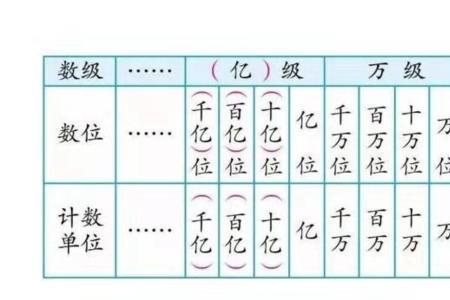 数级 …… （亿）级 万级
数位 …… （千亿）位 （百亿）位 （十亿）位 亿位 千万位 百万位 十万位 万
计数单位 …… （千亿） （百亿） （十亿） 亿 千万 百万 十万 万